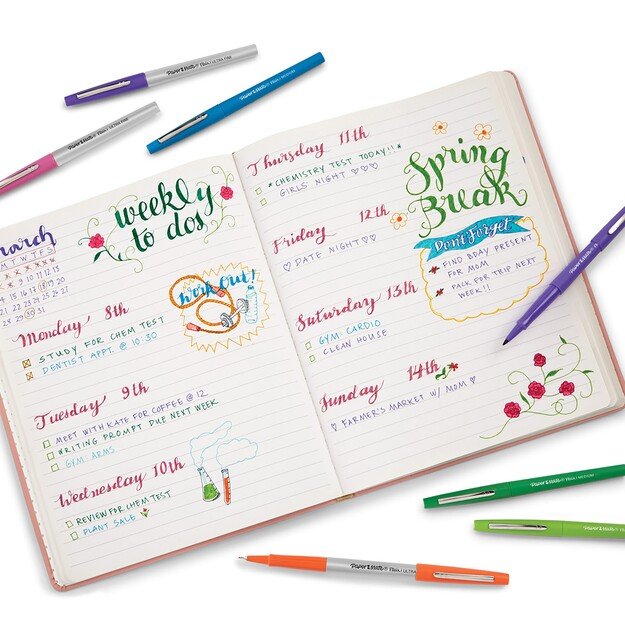 Paper Mate® Flair | ULTRA FINE
Paper Mate® Flair | MEDIUM
Paper Mate® Flair | ULTRA FINE
march
M T W T F S
weekly
to dos
Monday 8th
STUDY FOR CHEM TEST
DENTIST APPT. @ 10:30
Work Out!
Tuesday 9th
MEET WITH KATE FOR COFFEE @ 12
WRITING PROMPT DUE NEXT WEEK
GYM: ARMS
Wednesday 10th
REVIEW FOR CHEM TEST
PLANT SALE
Thursday 11th
*CHEMISTRY TEST TODAY!!*
GIRLS NIGHT ♡♡♡
Friday 12th
♡ DATE NIGHT ♡♡
Saturday 13th
GYM: CARDIO
CLEAN HOUSE
Sunday 14th
♡ FARMER'S MARKET W/ MOM ♡
Spring
Break
Don't Forget
FIND BDAY PRESENT
FOR MOM
PACK FOR TRIP NEXT
WEEK!!
Paper Mate® Flair | MEDIUM
Paper Mate® Flair
Paper Mate® Flair | ULTRA